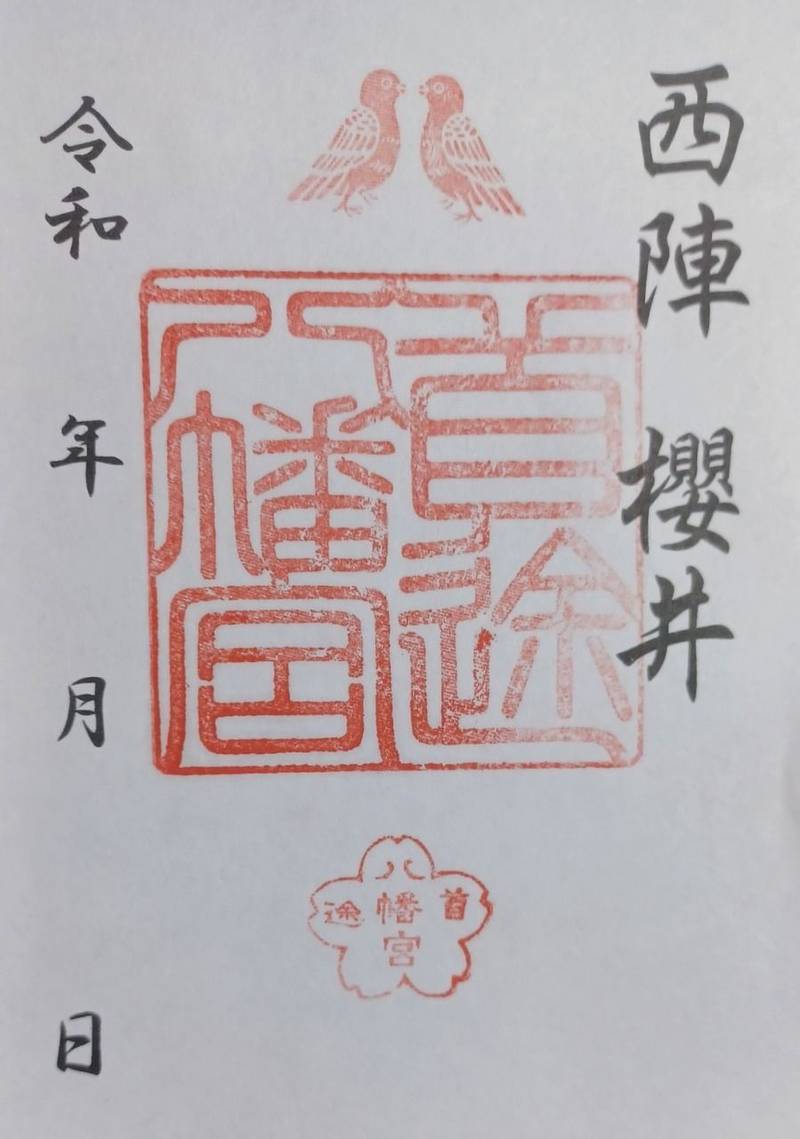 西陣 櫻井
首途
八幡宮
首途
八幡宮
令和 年 月 日